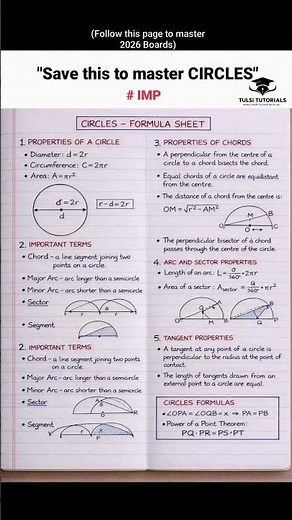 (Follow this page to master
2026 Boards)
"Save this to master CIRCLES"
# IMP
TULSI TUTORIALS
CIRCLES – FORMULA SHEET
1. PROPERTIES OF A CIRCLE
• Diameter: d = 2r
• Circumference: C = 2πr
• Area: A = πr²
d = 2r
d
r-d=2r
2. IMPORTANT TERMS
• Chord – a line segment joining two
points on a circle.
• Major Arc – arc longer than a semicircle
• Minor Arc – arc shorter than a semicircle
• Sector
• Segment
2. IMPORTANT TERMS
• Chord – a line segment joining two points
on a circle.
• Major Arc – arc longer than a semicircle
• Minor Arc – arc shorter than a semicircle
• Sector
• Segment
3. PROPERTIES OF CHORDS
• A perpendicular from the centre of a
circle to a chord bisects the chord.
• Equal chords of a circle are equidistant
from the centre.
• The distance of a chord from the centre is:
OM = √r² – AM²
• The perpendicular bisector of a chord
passes through the centre of the circle.
4. ARC AND SECTOR PROPERTIES
• Length of an arc: L = θ/360° • 2πr
• Area of a sector: A sector = θ/360° • πr²
5. TANGENT PROPERTIES
• A tangent at any point of a circle is
perpendicular to the radius at the point of
contact.
• The length of tangents drawn from an
external point to a circle are equal.
CIRCLES FORMULAS
• ∠OPA = ∠OQB = x → PA = PB
• Power of a Point Theorem:
PQ · PR = PS · PT